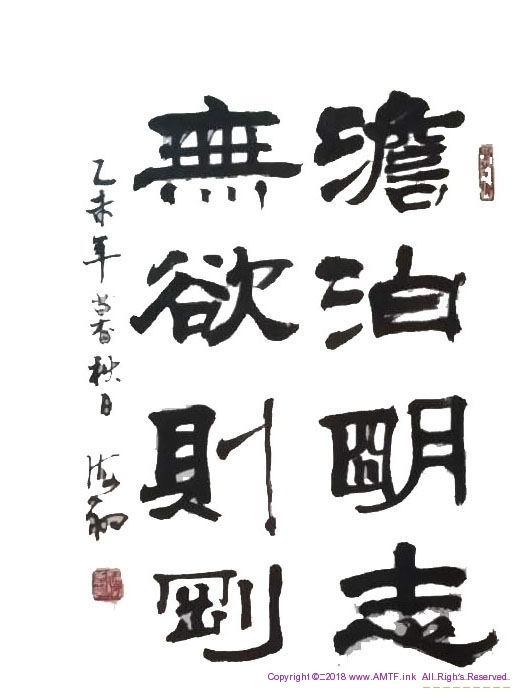 澹泊明志
無欲則剛
乙未年 秋日
Copyright ©2018 www.AMTF.ink All Rights Reserved